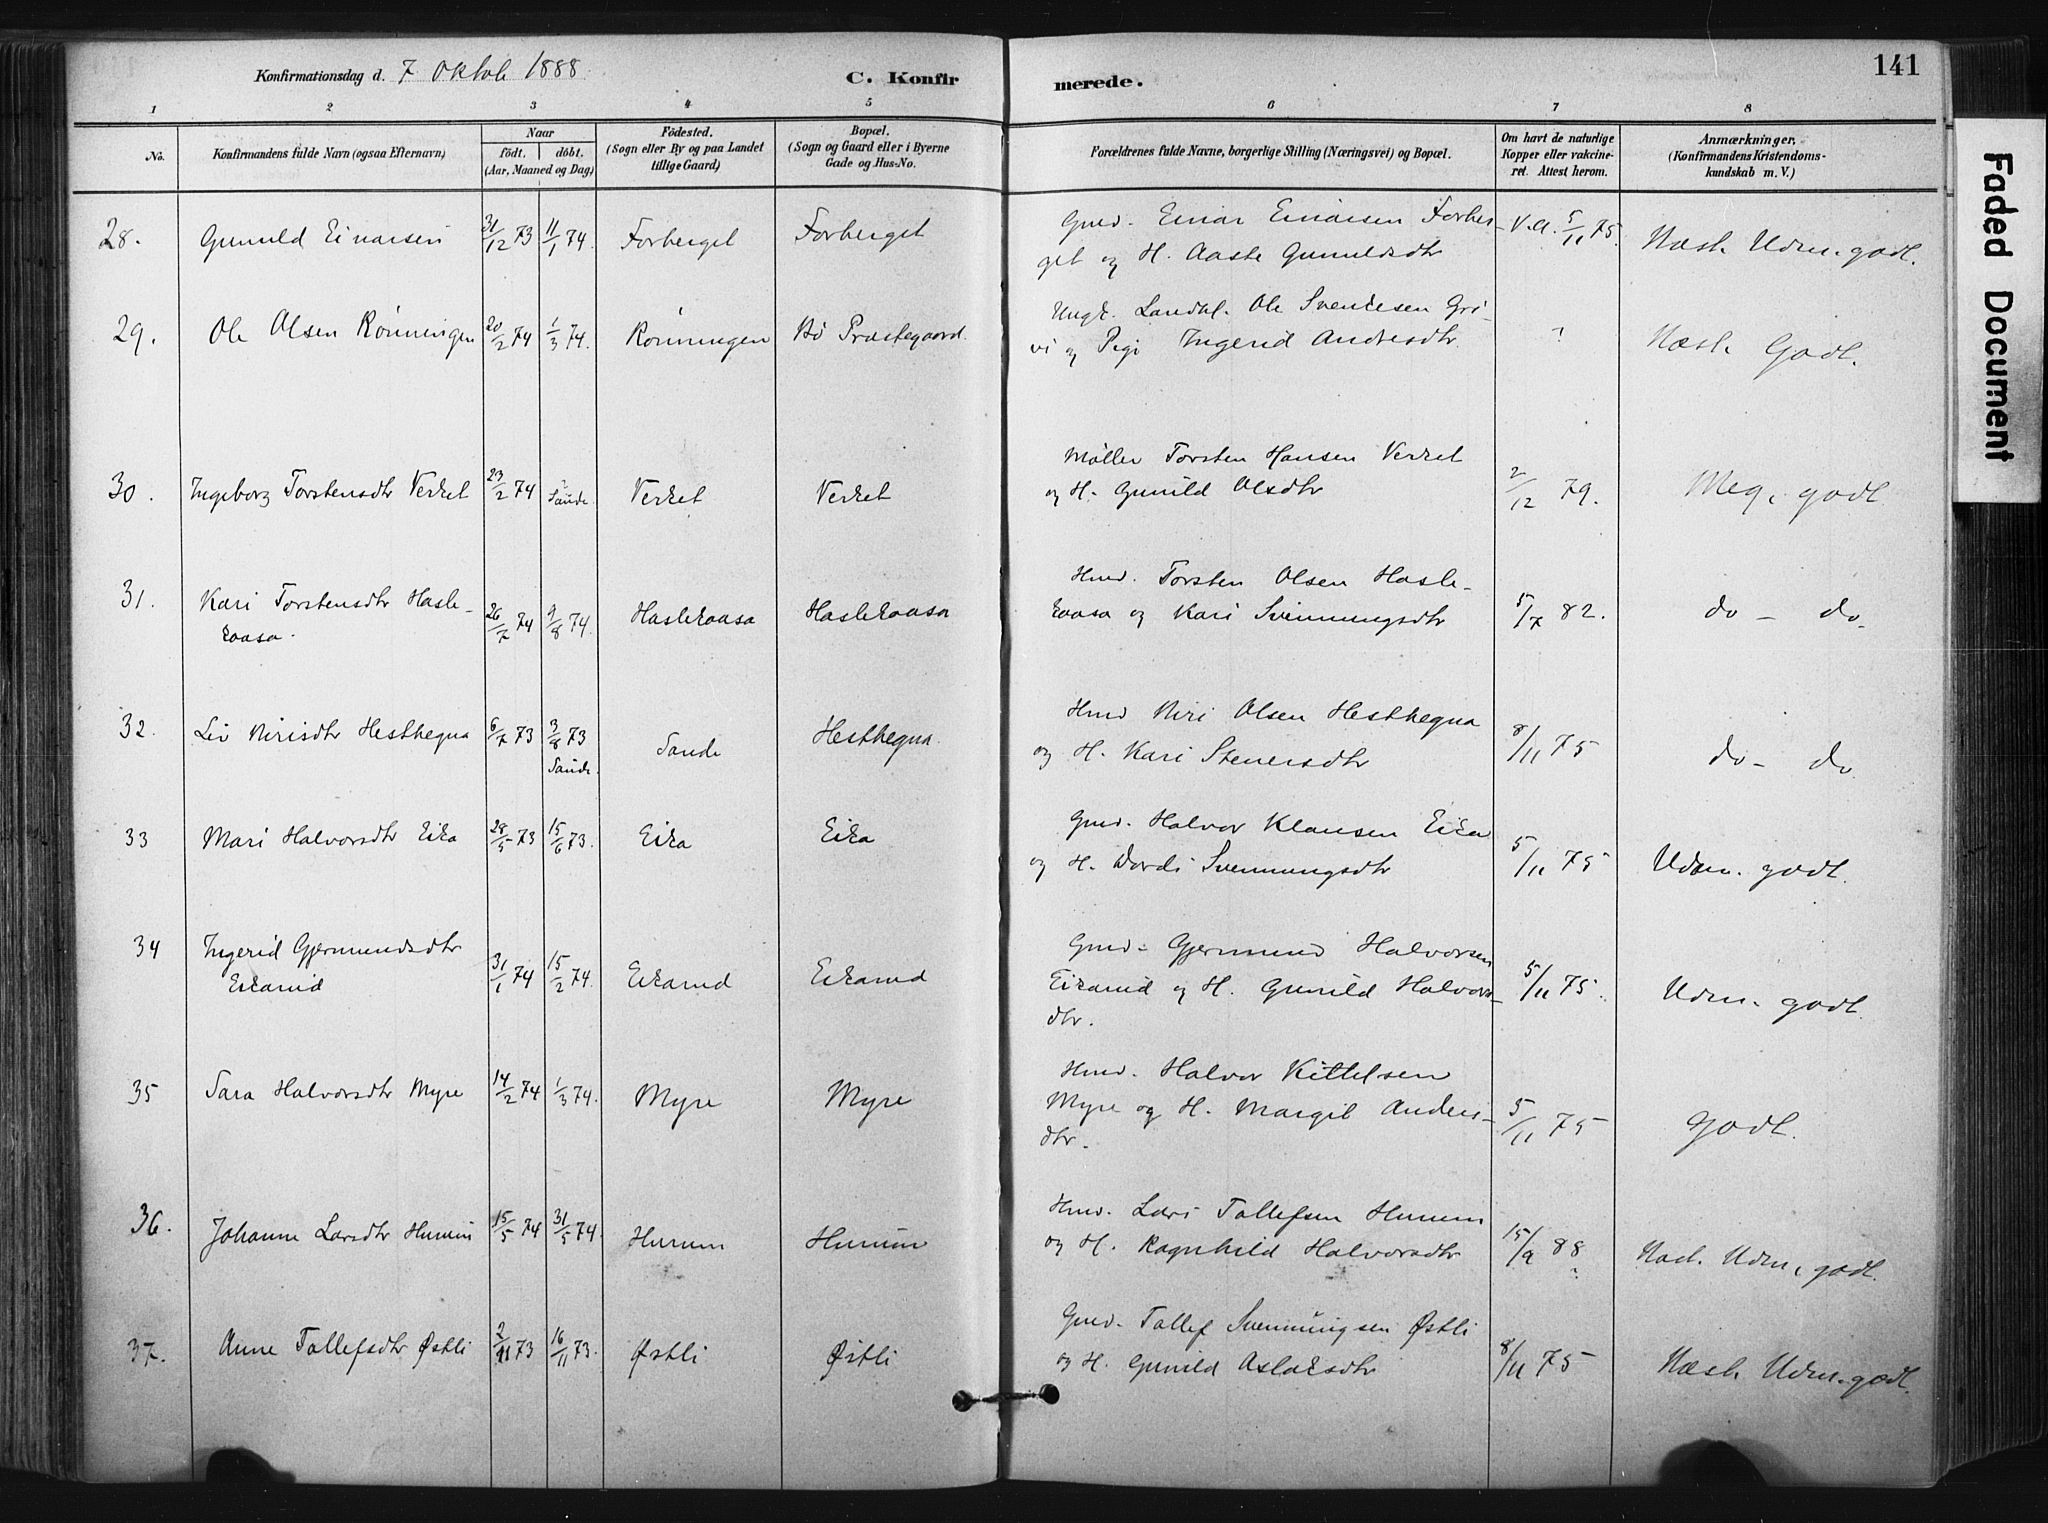 141
Konfirmationsdag d. 7 Oktob 1888.
C. Konfirmerede.
1 2 3 4 5 6 7 8
No.
Konfirmandens fulde Navn (ogsaa Efternavn)
Naar
födt. döbt.
(Aar, Maaned og Dag)
Födested.
(Sogn eller By og paa Landet
tillige Gaard)
Bopæl.
(Sogn og Gaard eller i Byerne
Gade og Hus-No.
Forældrenes fulde Navne, borgerlige Stilling (Næringsvei) og Bopæl.
Om havt de naturlige
Kopper eller vakcine-
ret. Attest herom.
Anmærkninger.
(Konfirmandens Kristendoms-
kundskab m. V.)
28. Gunuld Einarsen 31/12 73 11/1 74. Forberget Forberget
Gmd. Einar Einarsen Forber-
get og H. Aaste Gunuldsdtr
V.A. 5/11 75. Næst. Udm. godt.
29. Ole Olsen Rönningen 20/2 74 1/3 74. Rönningen Bö Præstegaard.
Ungk. Landal. Ole Svendsen Gri-
vi og Pige Ingerid Andersdtr.
? Næst. Godt.
30. Ingeborg Torstensdtr Verket 23/2 74 Sande. Verket Verket
Möller Torsten Hansen Verket
og H. Gunild Olsdtr
2/12 79. Meg. godt
31. Kari Torstensdtr Hasle-
kaasa. 26/7 74 9/8 74. Haslekaasa Haslekaasa
Hmd. Torsten Olsen Hasle-
kaasa og Kari Svennungsdtr
5/7 82. do - do.
32. Liv Nirisdtr Hesthegna 6/7 73 3/8 73 Sande. Sande Hesthegna.
Hmd Niri Olsen Hesthegna
og H. Kari Stenersdtr
8/11 75 do - do
33 Mari Halvorsdtr Eika 28/5 73 15/6 73. Eika Eika
Gmd. Halvor Klausen Eika
og H. Dordi Svennungsdtr
5/11 75 Udm. godt.
34 Ingerid Gjermundsdtr
Eikarud 31/1 74 15/2 74. Eikarud Eikarud
Gmd. Gjermund Halvorsen
Eikarud og H. Gunild Halvors-
dtr.
5/11 75. Udm. godt.
35 Sara Halvorsdtr Myre 14/2 74 1/3 74. Myre Myre
Hmd. Halvor Kittelsen
Myre og H. Margit Anders-
dtr.
5/11 75 Godt.
36. Johanne Larsdtr Hurum 15/5 74 31/5 74. Hurum Hurum
Hmd. Lars Tollefsen Hurum
og H. Ragnhild Halvorsdtr
15/9 88 Næst. Udm. godt.
37. Anne Tollefsdtr Østli 2/11 73 16/11 73. Østli Østli
Gmd. Tollef Svennungsen Østli
og H. Gunild Aslaksdtr
8/11 75 Næst. Udm. godt.
Faded Document